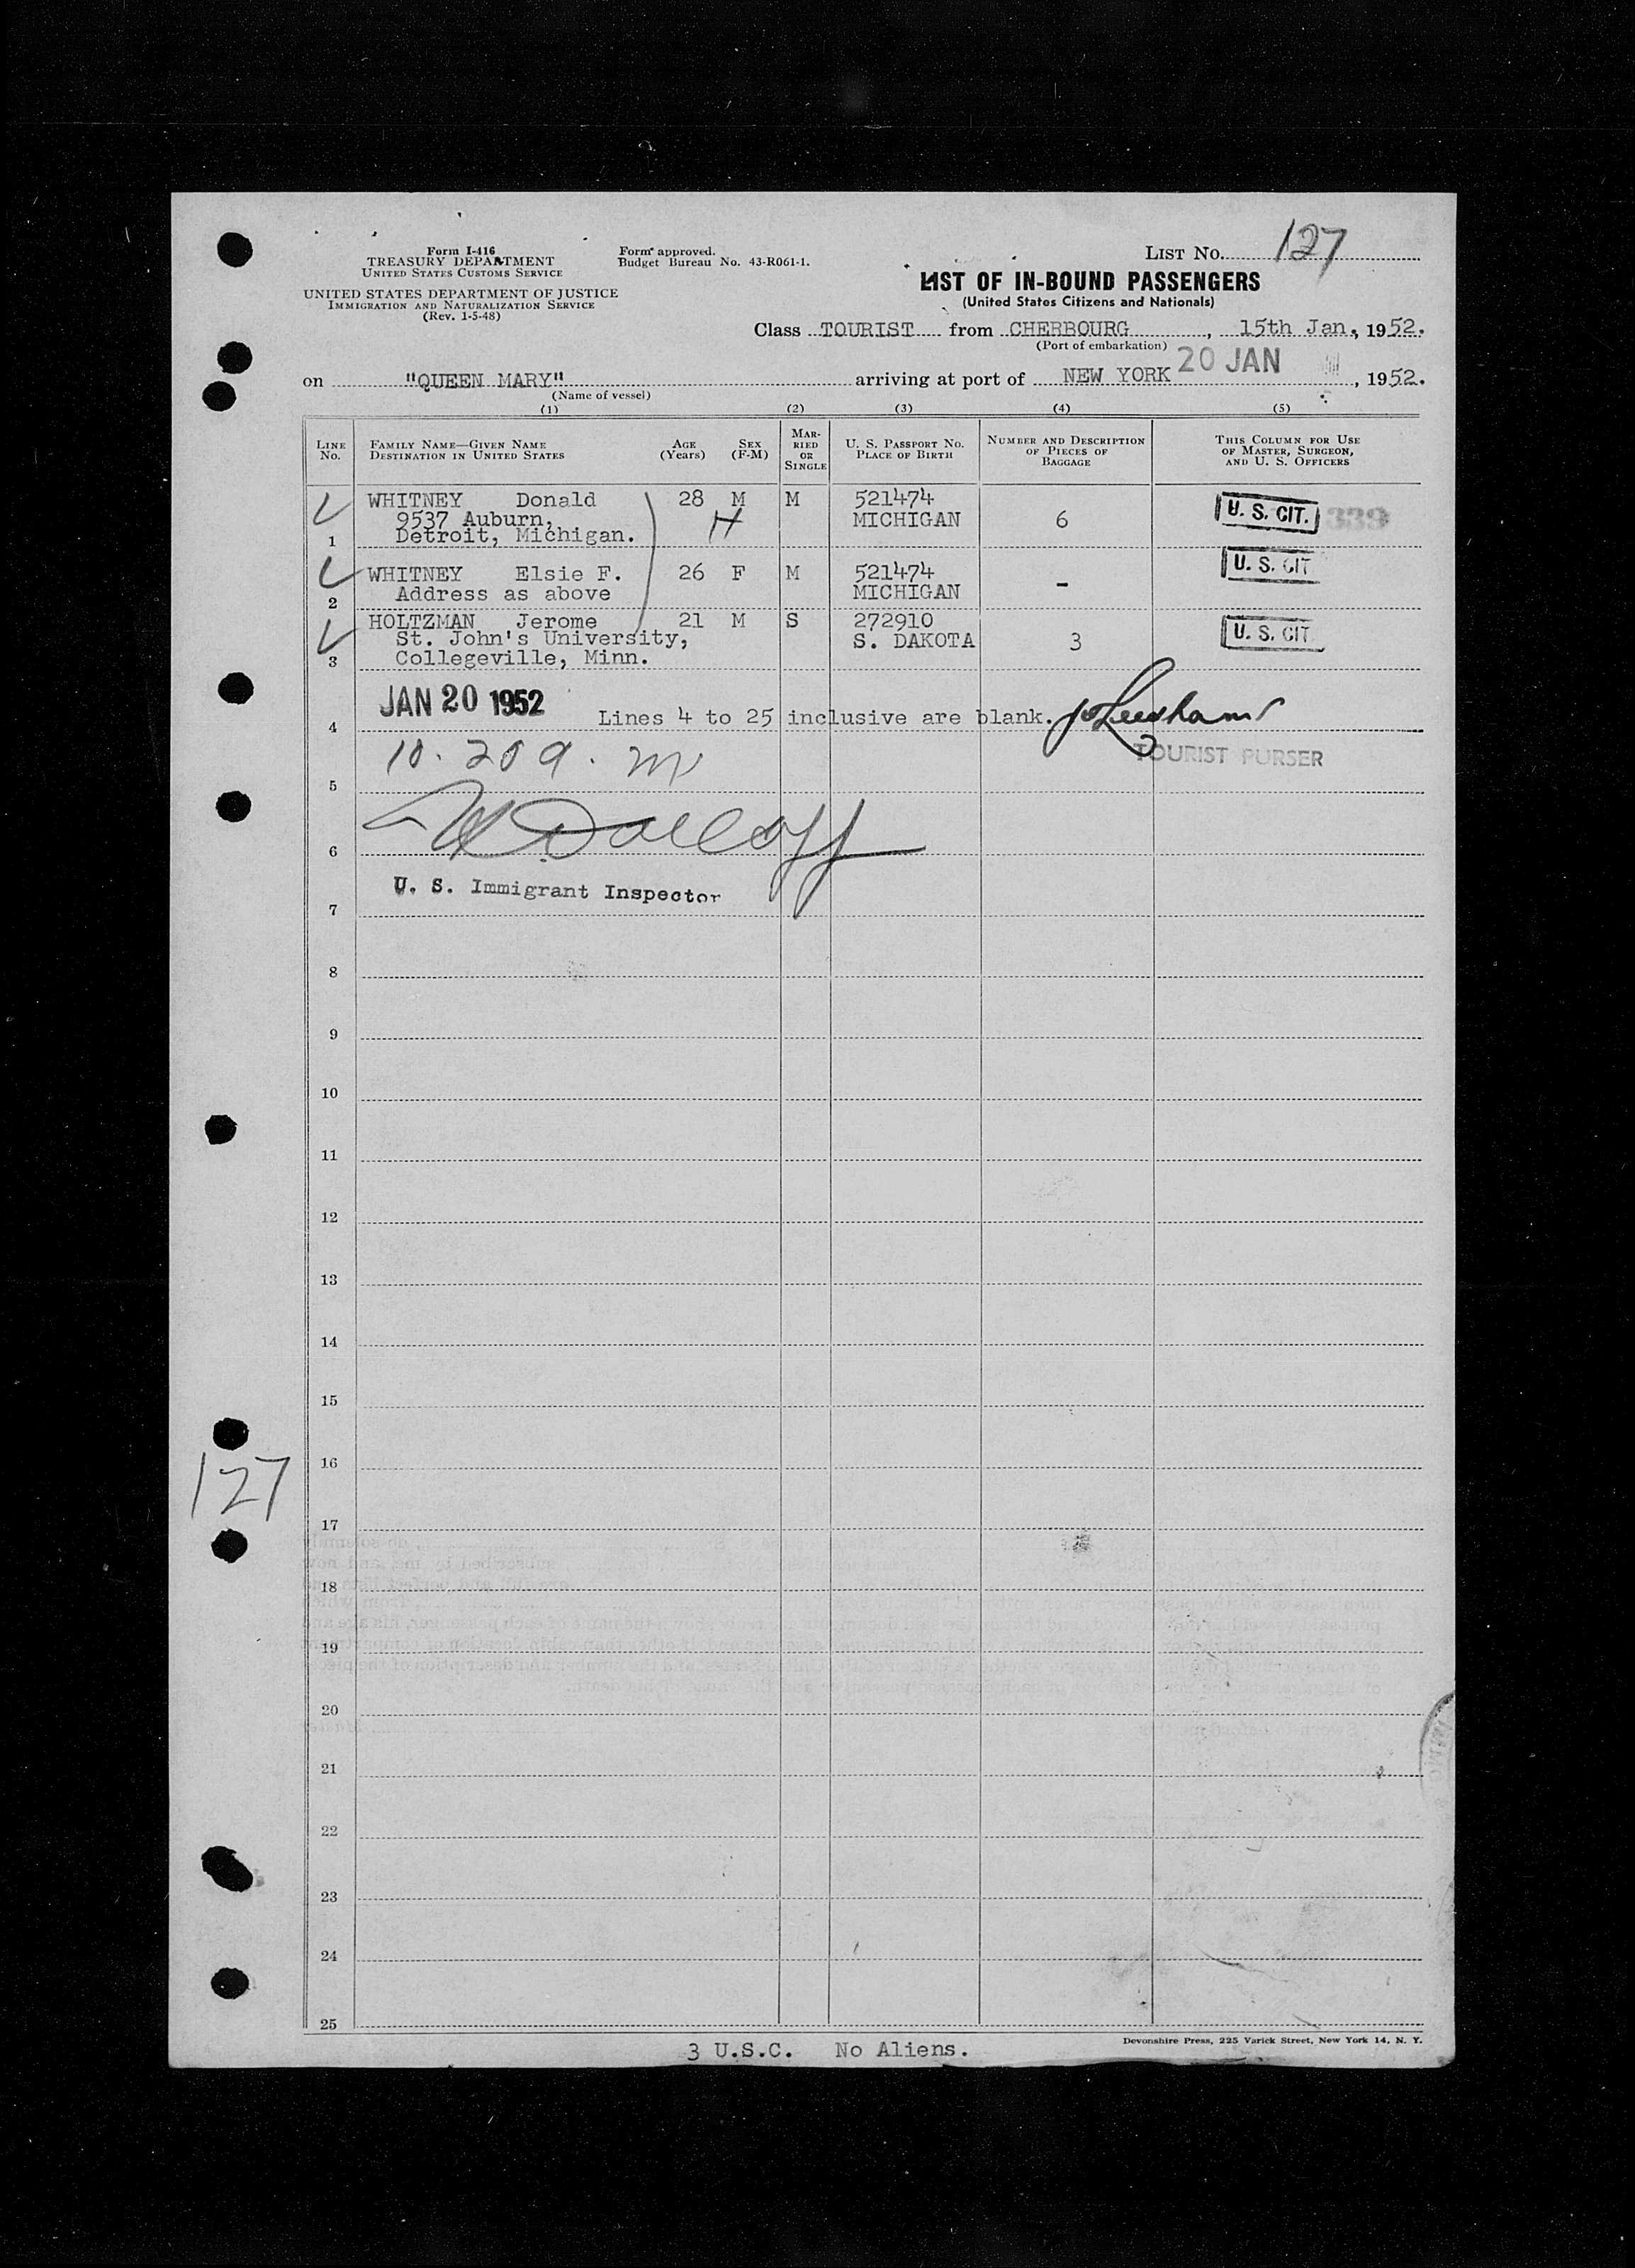 Form I-416
TREASURY DEPARTMENT
UNITED STATES CUSTOMS SERVICE
UNITED STATES DEPARTMENT OF JUSTICE
IMMIGRATION AND NATURALIZATION SERVICE
(Rev. 1-5-48)
Form approved.
Budget Bureau No. 43-R061-1.
LIST No. 127
LIST OF IN-BOUND PASSENGERS
(United States Citizens and Nationals)
Class TOURIST from CHERBOURG, 15th Jan., 1952.
(Port of embarkation)
on "QUEEN MARY" arriving at port of NEW YORK 20 JAN, 1952.
(Name of vessel)
(1) (2) (3) (4) (5)
LINE No. FAMILY NAME—GIVEN NAME DESTINATION IN UNITED STATES AGE (Years) SEX (F-M) MARRIED OR SINGLE U. S. PASSPORT NO. PLACE OF BIRTH NUMBER AND DESCRIPTION OF PIECES OF BAGGAGE THIS COLUMN FOR USE OF MASTER, SURGEON, AND U. S. OFFICERS
WHITNEY Donald 28 M M 521474 U. S. CIT. 339
9537 Auburn, H MICHIGAN 6
1 Detroit, Michigan.
WHITNEY Elsie F. 26 F M 521474 U. S. CIT
2 Address as above MICHIGAN -
HOLTZMAN Jerome 21 M S 272910 U. S. CIT
St. John's University, S. DAKOTA 3
3 Collegeville, Minn.
JAN 20 1952
4 Lines 4 to 25 inclusive are blank.
TOURIST PURSER
10.20 a.m
5
6
U. S. Immigrant Inspector
7
8
9
10
11
12
13
14
15
16
127
17
18
19
20
21
22
23
24
25
Devonshire Press, 225 Varick Street, New York 14, N. Y.
3 U.S.C. No Aliens.